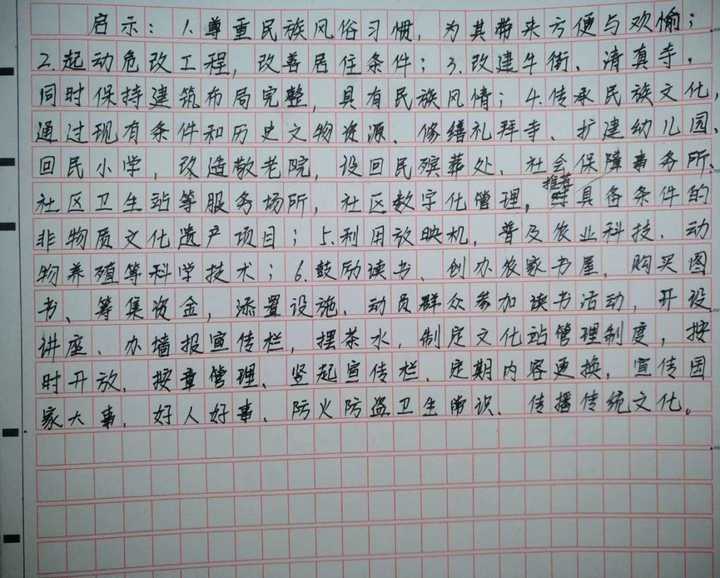 启示：1.尊重民族风俗习惯，为其带来方便与欢愉；
2.起动危改工程，改善居住条件；3.改建牛街、清真寺，
同时保持建筑布局完整，具有民族风情；4.传承民族文化，
通过现有条件和历史文物资源、修缮礼拜寺、扩建幼儿园、
回民小学，改造敬老院，设回民殡葬处、社会保障事务所、
社区卫生站等服务场所，社区数字化管理，推荐具备条件的
非物质文化遗产项目；5.利用放映机，普及农业科技、动
物养殖等科学技术；6.鼓励读书、创办农家书屋，购买图
书、筹集资金，添置设施，动员群众参加读书活动，开设
讲座、办墙报宣传栏，摆茶水，制定文化站管理制度，按
时开放，按章管理、竖起宣传栏，定期内容更换，宣传国
家大事，好人好事、防火防盗卫生常识、传播传统文化。